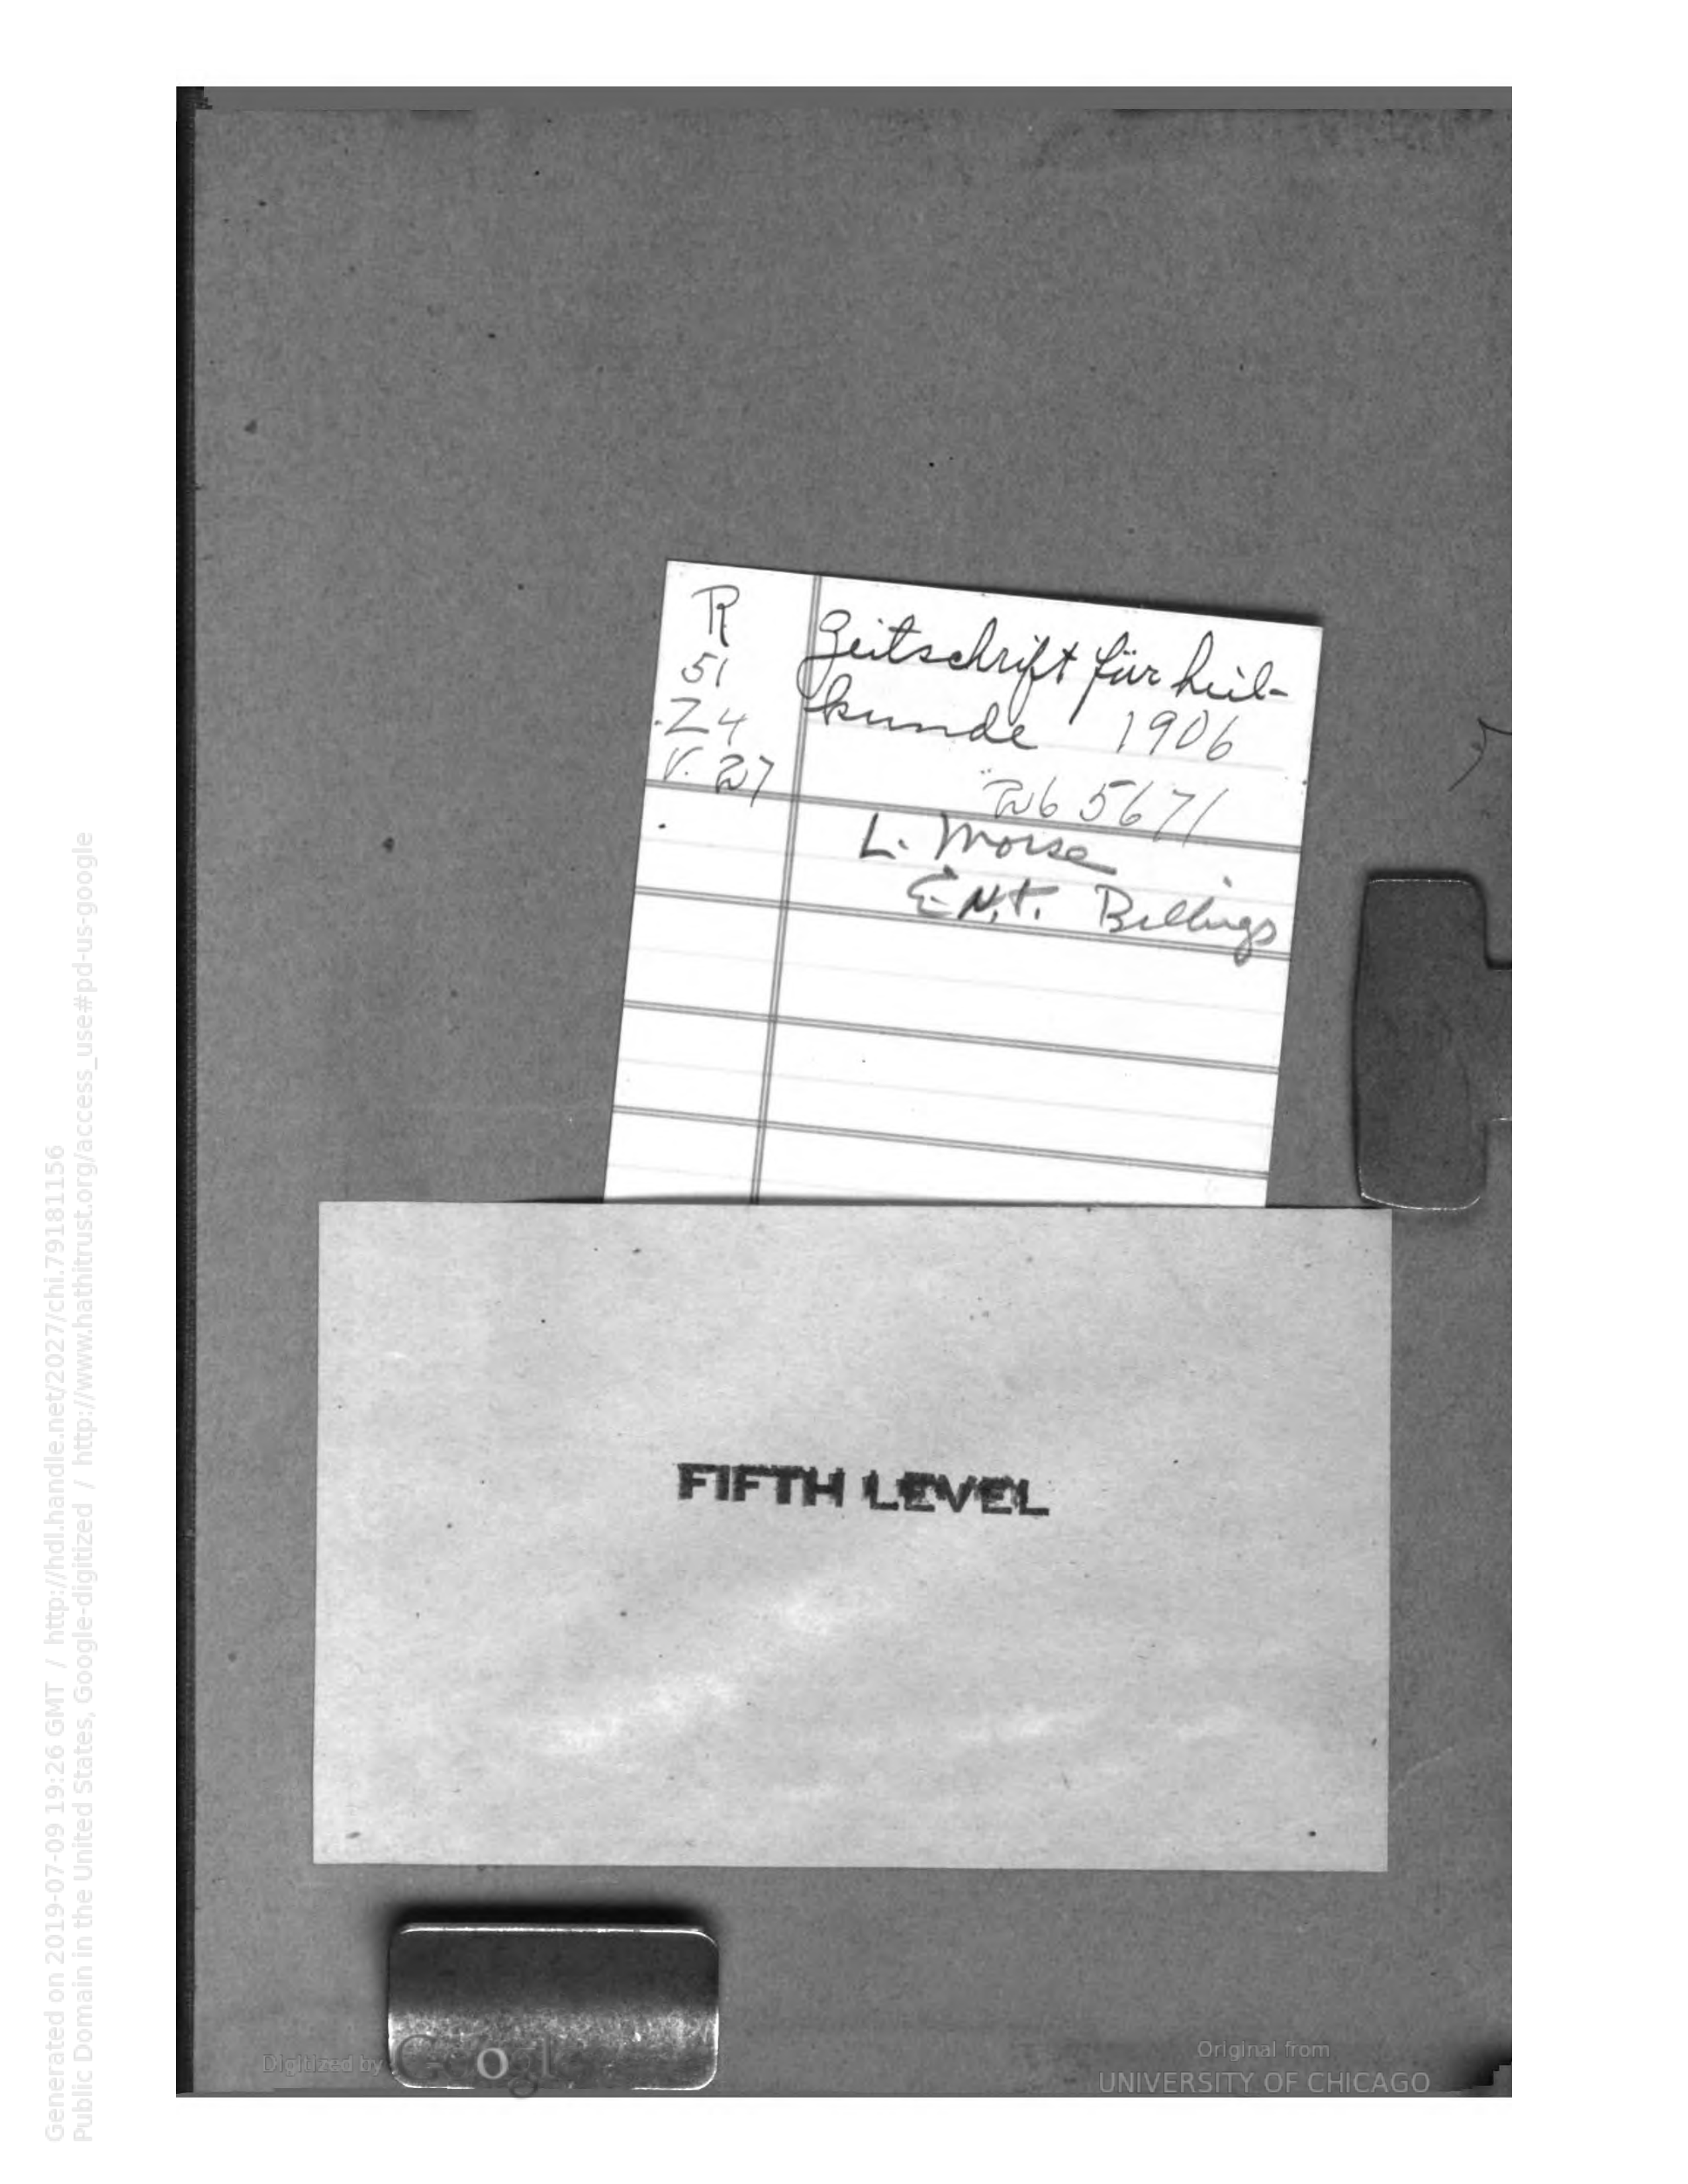 R
51
.Z4
V. 27
Zeitschrift für heil-
kunde 1906
5671
L. Morse
E.N.T. Billings
FIFTH LEVEL
Generated on 2019-07-09 19:26 GMT / http://hdl.handle.net/2027/chi.79181156
Public Domain in the United States, Google-digitized / http://www.hathitrust.org/access_use#pd-us-google
Digitized by Google
Original from
UNIVERSITY OF CHICAGO